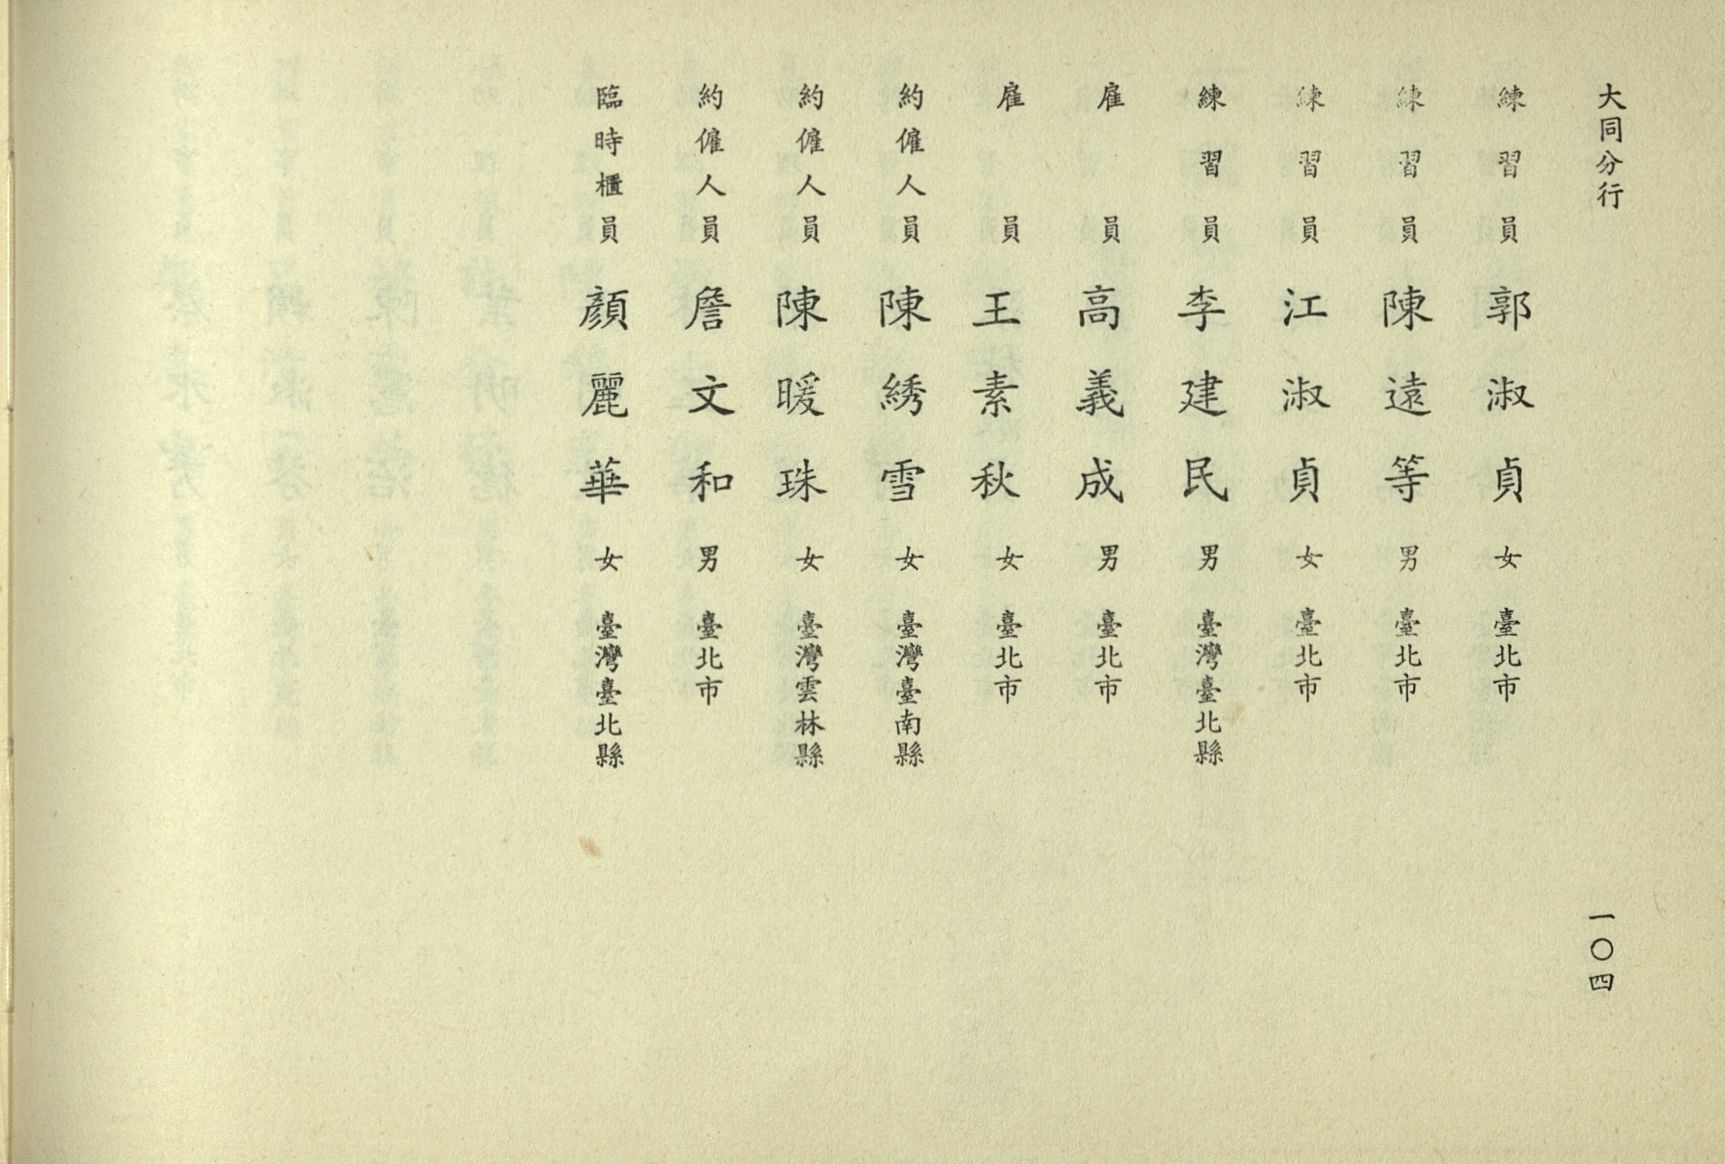 大同分行
一〇四
練習員 郭淑貞 女 臺北市
練習員 陳遠等 男 臺北市
練習員 江淑貞 女 臺北市
練習員 李建民 男 臺灣臺北縣
雇員 高義成 男 臺北市
雇員 王素秋 女 臺北市
約僱人員 陳綉雪 女 臺灣臺南縣
約僱人員 陳暖珠 女 臺灣雲林縣
約僱人員 詹文和 男 臺北市
臨時櫃員 顏麗華 女 臺灣臺北縣